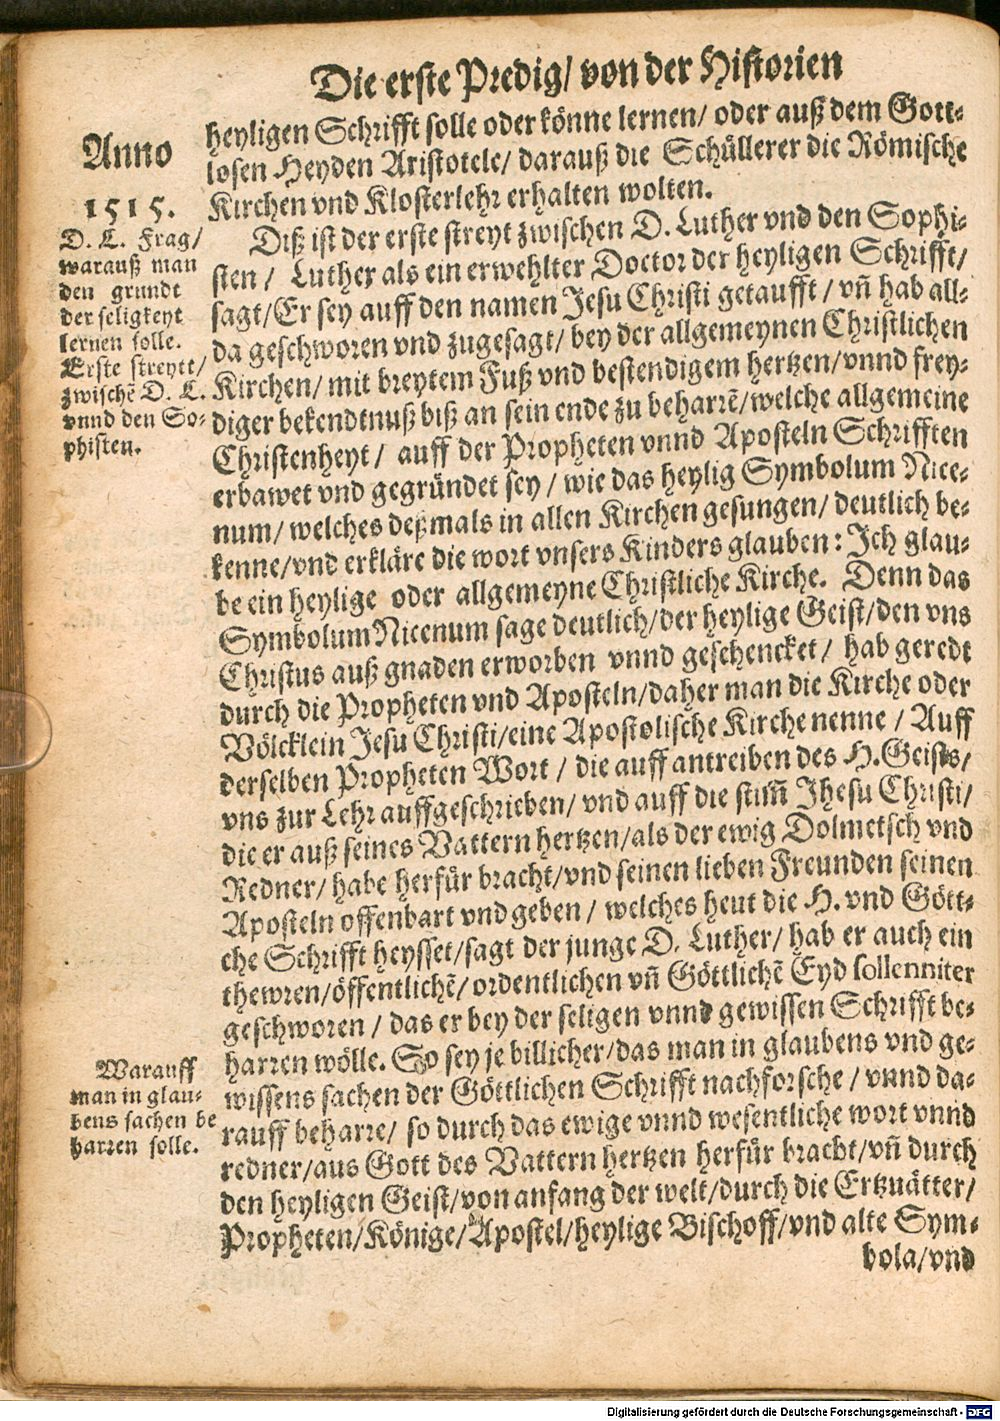 Die erste Predig/ von der Historien
Anno
1515.
D. L. Frag/
warauß man
den grundt
der seligkeyt
lernen solle.
Erste streytt/
zwischē D. L.
vnnd den So-
phisten.
heyligen Schrifft solle oder könne lernen/ oder auß dem Gott-
losen Heyden Aristotele/ darauß die Schüllerer die Römische
Kirchen vnd Klosterlehr erhalten wolten.
Diß ist der erste streyt zwischen D. Luther vnd den Sophi-
sten / Luther als ein erwehlter Doctor der heyligen Schrifft/
sagt/Er sey auff den namen Jesu Christi getaufft / vñ hab all-
da geschworen vnd zugesagt/ bey der allgemeynen Christlichen
Kirchen/ mit breytem Fuß vnd bestendigem hertzen/vnnd frey-
diger bekendtnuß biß an sein ende zu beharrē/welche allgemeine
Christenheyt / auff der Propheten vnnd Aposteln Schrifften
erbawet vnd gegründet sey / wie das heylig Symbolum Nice-
num/ welches deßmals in allen Kirchen gesungen/ deutlich be-
kenne/vnd erkläre die wort vnsers Kinders glauben: Jch glau-
be ein heylige oder allgemeyne Christliche Kirche. Denn das
Symbolum Nicenum sage deutlich/der heylige Geist/den vns
Christus auß gnaden erworben vnnd geschencket / hab geredt
durch die Propheten vnd Aposteln/daher man die Kirche oder
Völcklein Jesu Christi/eine Apostolische Kirche nenne / Auff
derselben Propheten Wort / die auff antreiben des H. Geists/
vns zur Lehr auffgeschrieben/ vnd auff die stim̃ Jhesu Christi/
die er auß seines Vattern hertzen/als der ewig Dolmetsch vnd
Redner/ habe herfür bracht/vnd seinen lieben Freunden seinen
Aposteln offenbart vnd geben / welches heut die H. vnd Gött-
che Schrifft heysset/sagt der junge D. Luther/ hab er auch ein
thewren/öffentlichē/ ordentlichen vñ Göttlichē Eyd sollenniter
geschworen / das er bey der seligen vnnd gewissen Schrifft be-
harren wölle. So sey je billicher/das man in glaubens vnd ge-
wissens sachen der Göttlichen Schrifft nachforsche / vnnd da-
rauff beharre/ so durch das ewige vnnd wesentliche wort vnnd
redner/aus Gott des Vattern hertzen herfür bracht/vñ durch
den heyligen Geist/von anfang der welt/durch die Ertzuätter/
Propheten/Könige/Apostel/heylige Bischoff/vnd alte Sym-
bola/vnd
Warauff
man in glau-
bens sachen be
harren solle.
Digitalisierung gefördert durch die Deutsche Forschungsgemeinschaft - DFG